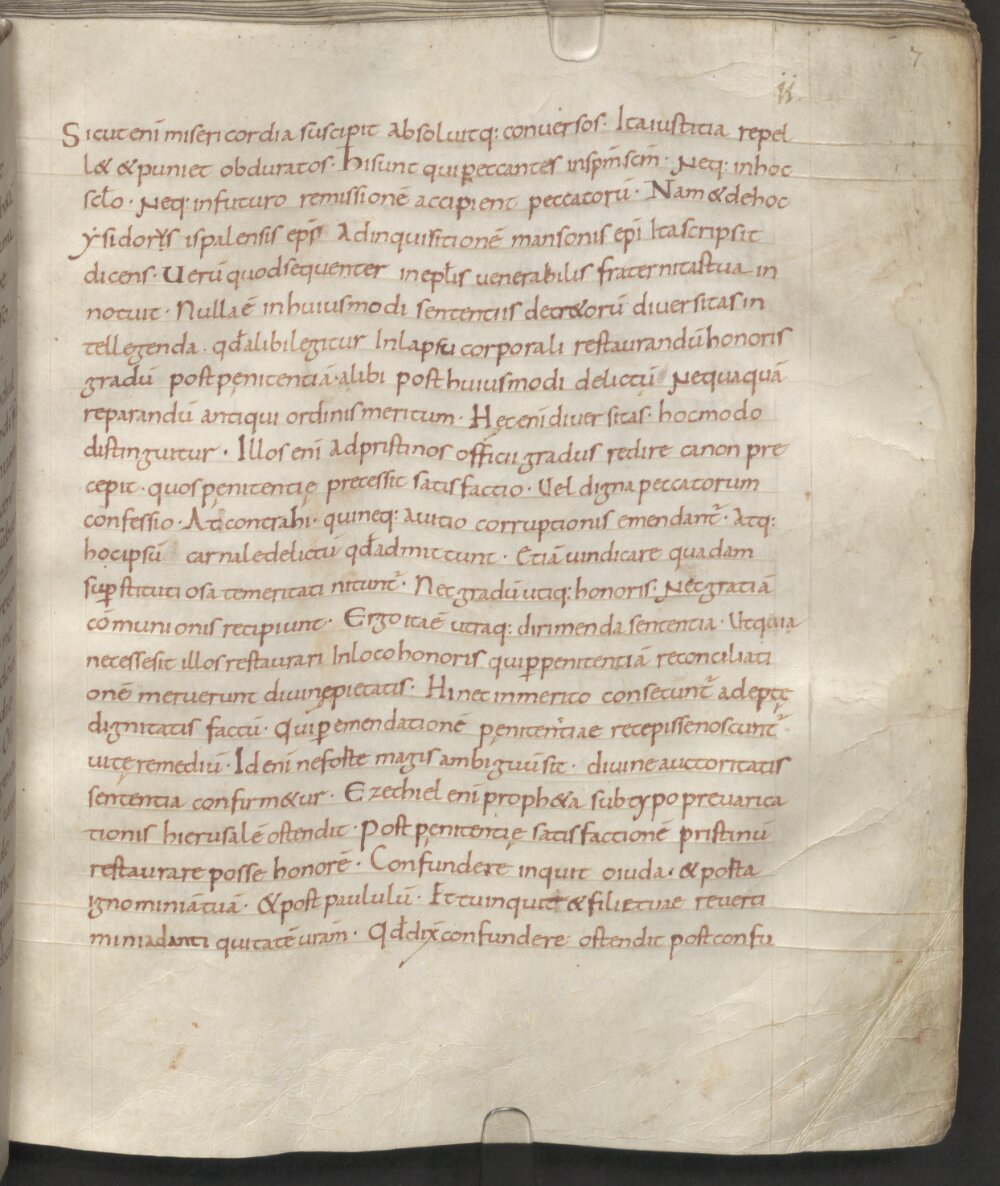 7
ii.
Sicut enī misericordia suscipit absoluitq: conuersos. Ita iustitia repel
l& & puniet obduratos. hi sunt qui peccantes in sp̄m sc̄m. Neq: in hoc
sc̄lo. Neq: in futuro remissionē accipient peccatorū. Nam & de hoc
ysidorus ispalensis ep̄s Ad inquisitionē mansonis ep̄i Ita scripsit
dicens. Uerū quod sequenter in ep̄lis uenerabilis fraternitas tua in
notuit. Nulla ē in huiusmodi sententiis decr&orū diuersitas in
tellegenda. qđ alibi legitur In lapsu corporali restaurandū honoris
gradū post pęnitentiā. alibi post huiusmodi delictū Nequaquā
reparandū antiqui ordinis meritum. Hęc enī diuersitas hoc modo
distinguitur. Illos enī ad pristinos officii gradus redire canon pre
cepit. quos pęnitentię precessit satisfactio. Uel digna peccatorum
confessio. At contra hi. qui neq: a uitio corruptionis emendant᷑. Atq:
hoc ipsū carnale delictū qđ admittunt. Etiā uindicare quadam
sup̄stitutiosa temeritati nitunt᷑. Nec gradū utiq: honoris. Nec gratiā
cōmunionis recipiunt. Ergo ita ē utraq: dirimenda sententia. Ut quia
necesse sit illos restaurari In loco honoris qui p̄ penitentiā reconciliati
onē meruerunt diuinę pietatis. Hi nec inmerito consecunt᷑ adeptę
dignitatis factū. Qui p̄ emendationē pęnitentiae recepisse noscunt᷑
uitę remediū. Id enī ne forte magis ambiguū sit. diuine auctoritatis
sententia confirm&ur. Ezechiel enī proph&a sub typo preuarica
tionis hierusalē ostendit. Post pęnitentię satisfactionē pristinū
restaurare posse honorē. Confundere inquit o iuda. & porta
ignominiā tuā. & post paululū. Et tu inquit & filie tuae reuerti
mini ad anti quitatē urām. Qđ dix̄ confundere ostendit post confu